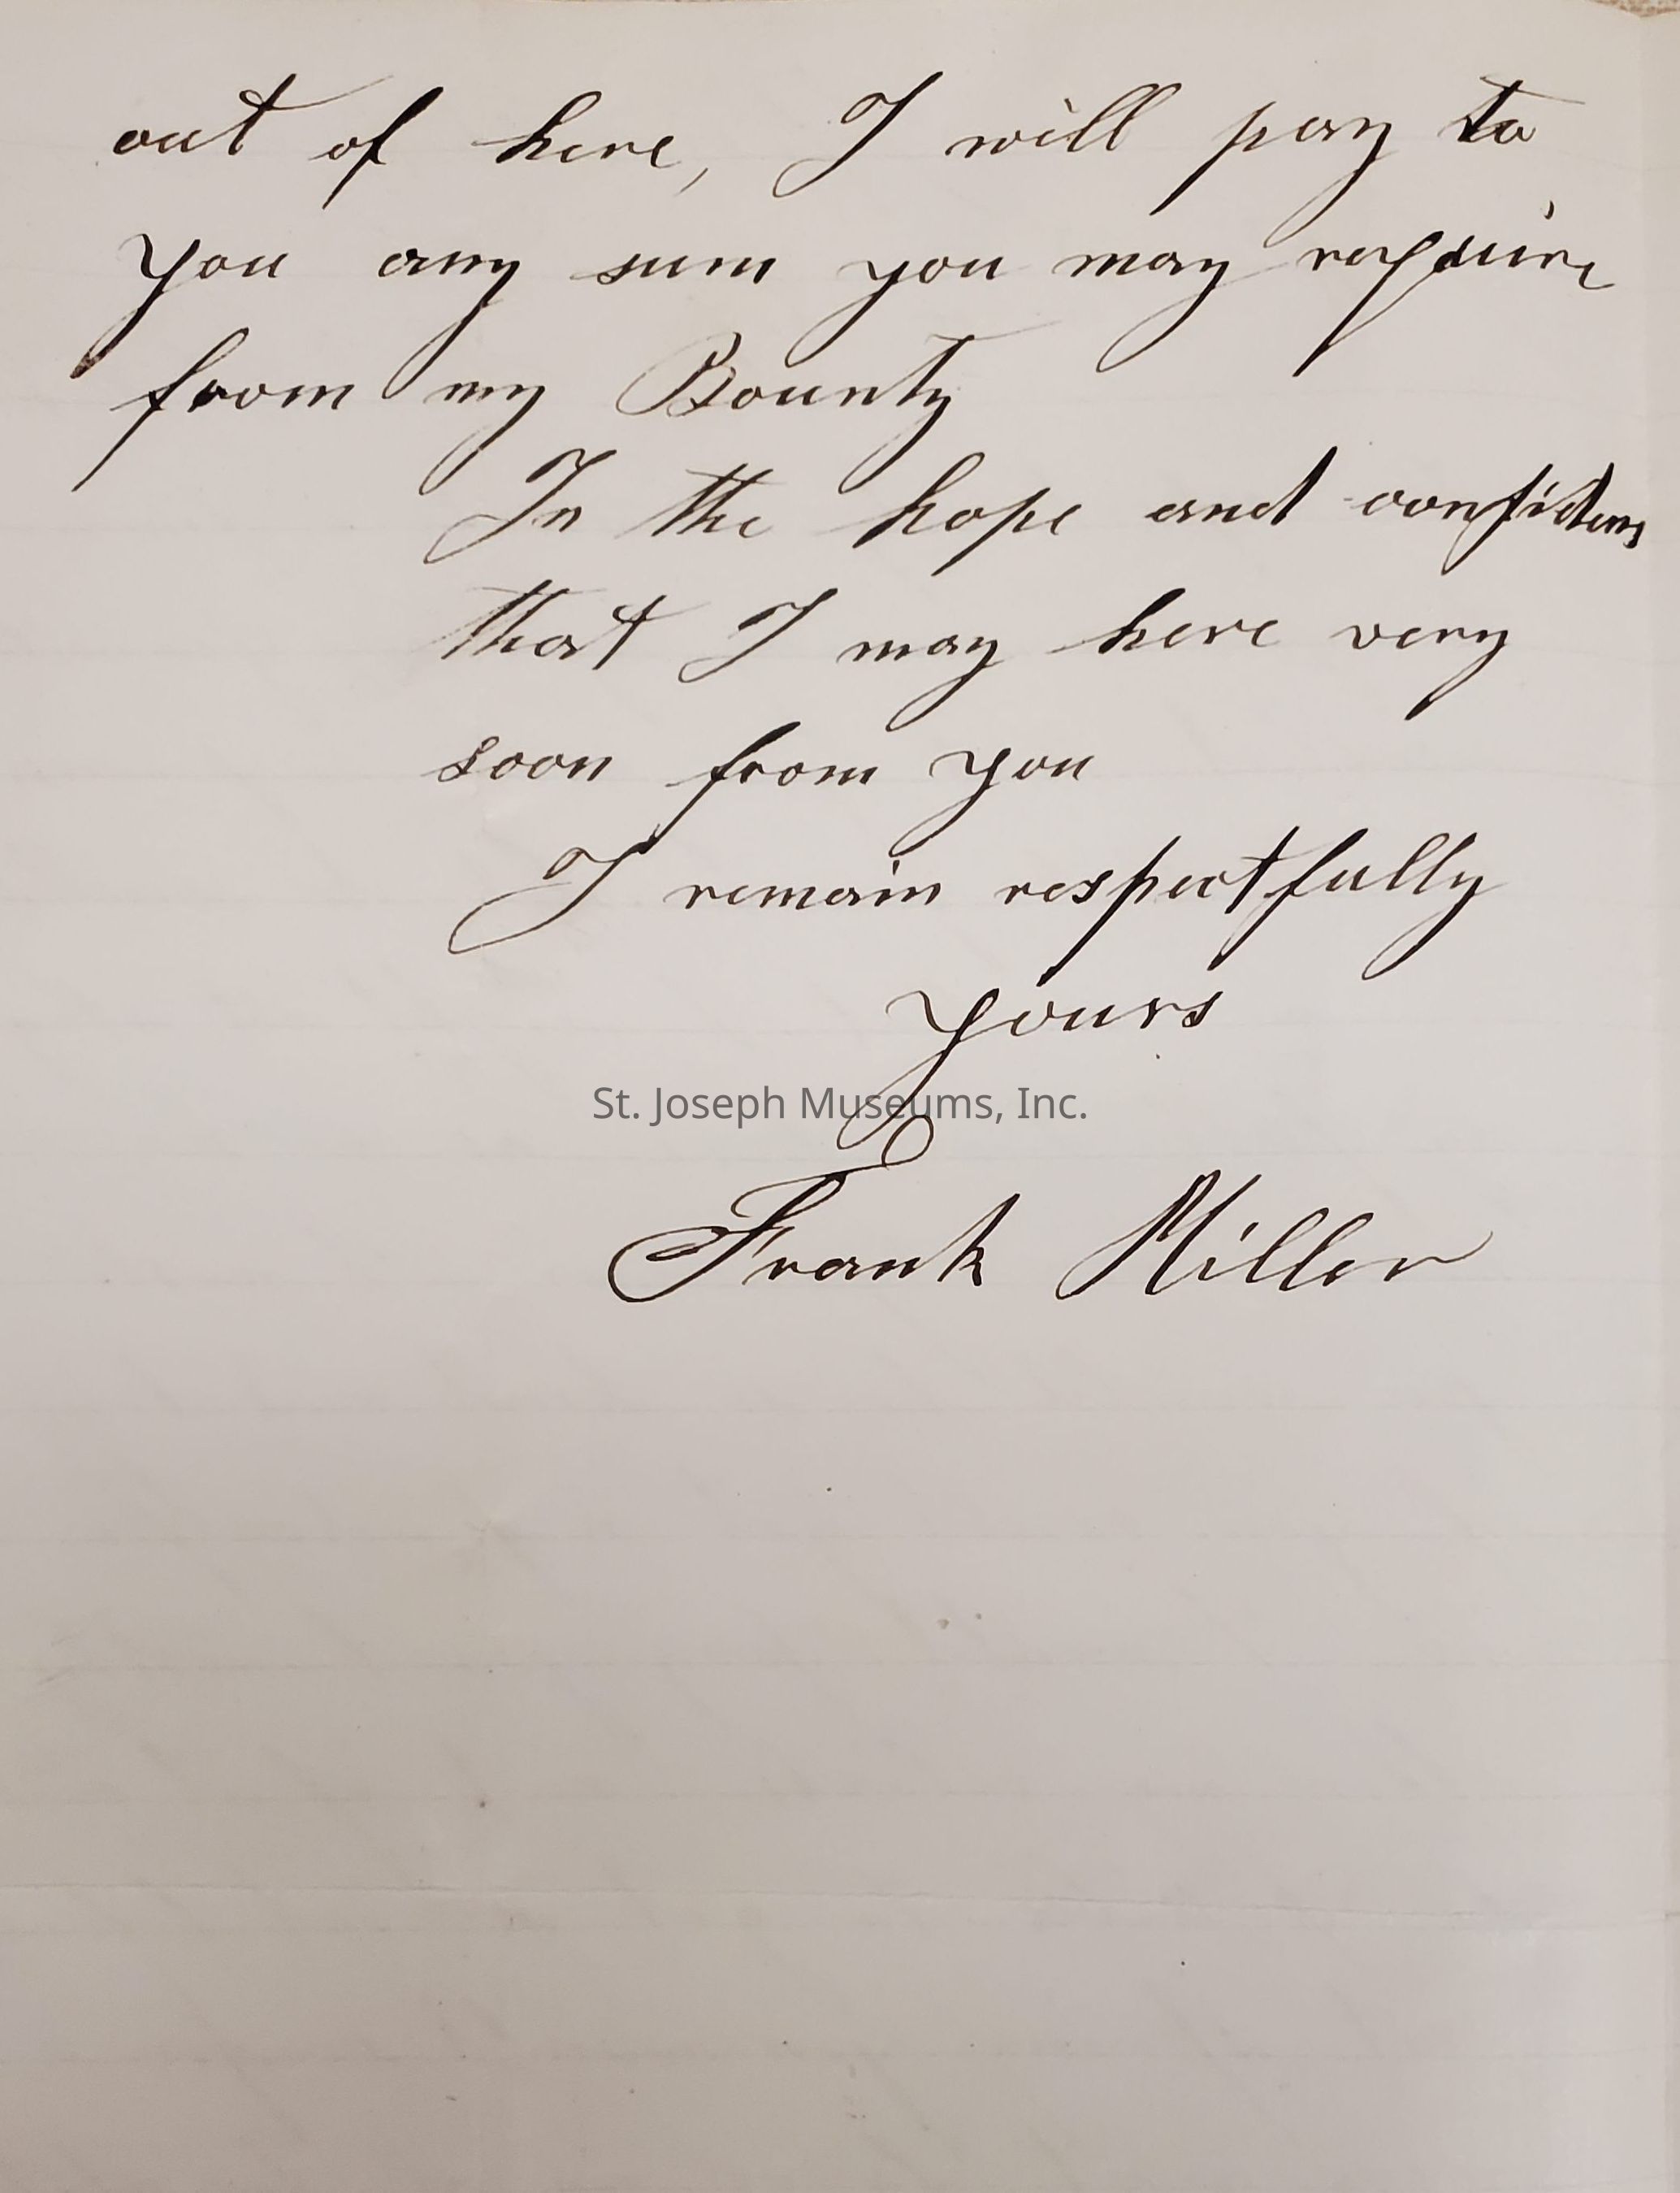 out of here, I will pay to
you any sum you may require
from my Bounty
In the hope and
that I may here very
soon from you
I remain respectfully
yours
St. Joseph Museums, Inc.
Frank Miller